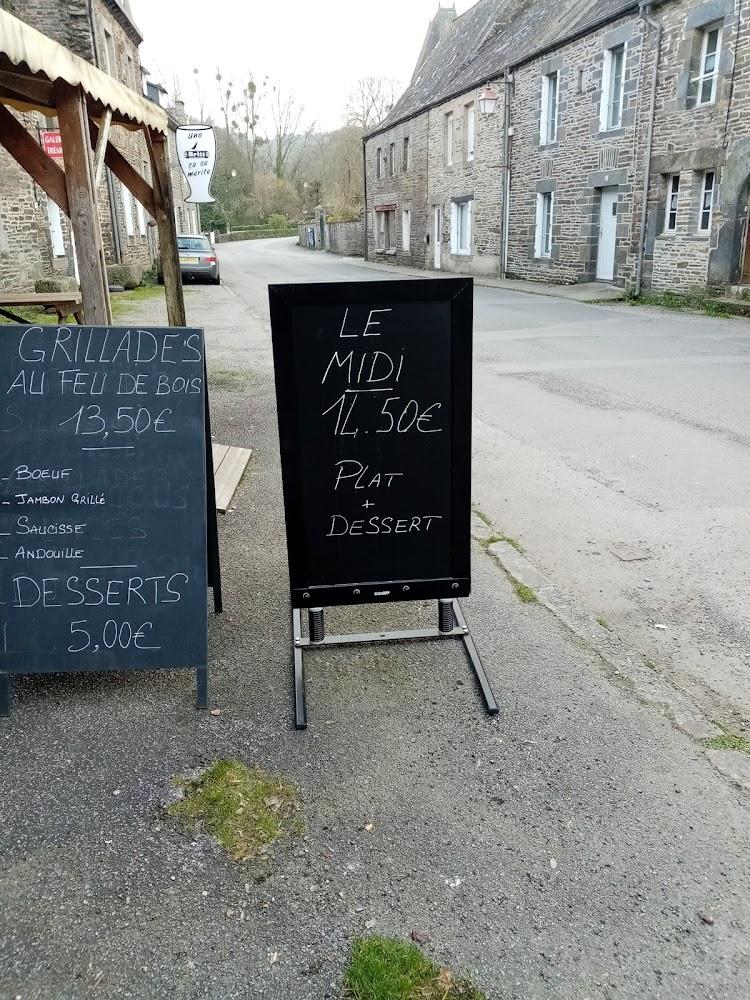 GRILLADE'S
AU FEU DE BOIS
13,50€
- BOEUF
- JAMBON GRILLÉ
- SAUCISSE
- ANDOUILLE
DESSERTS
5,00€
LE
MIDI
14.50€
PLAT
+
DESSERT
une
ça se
mérite